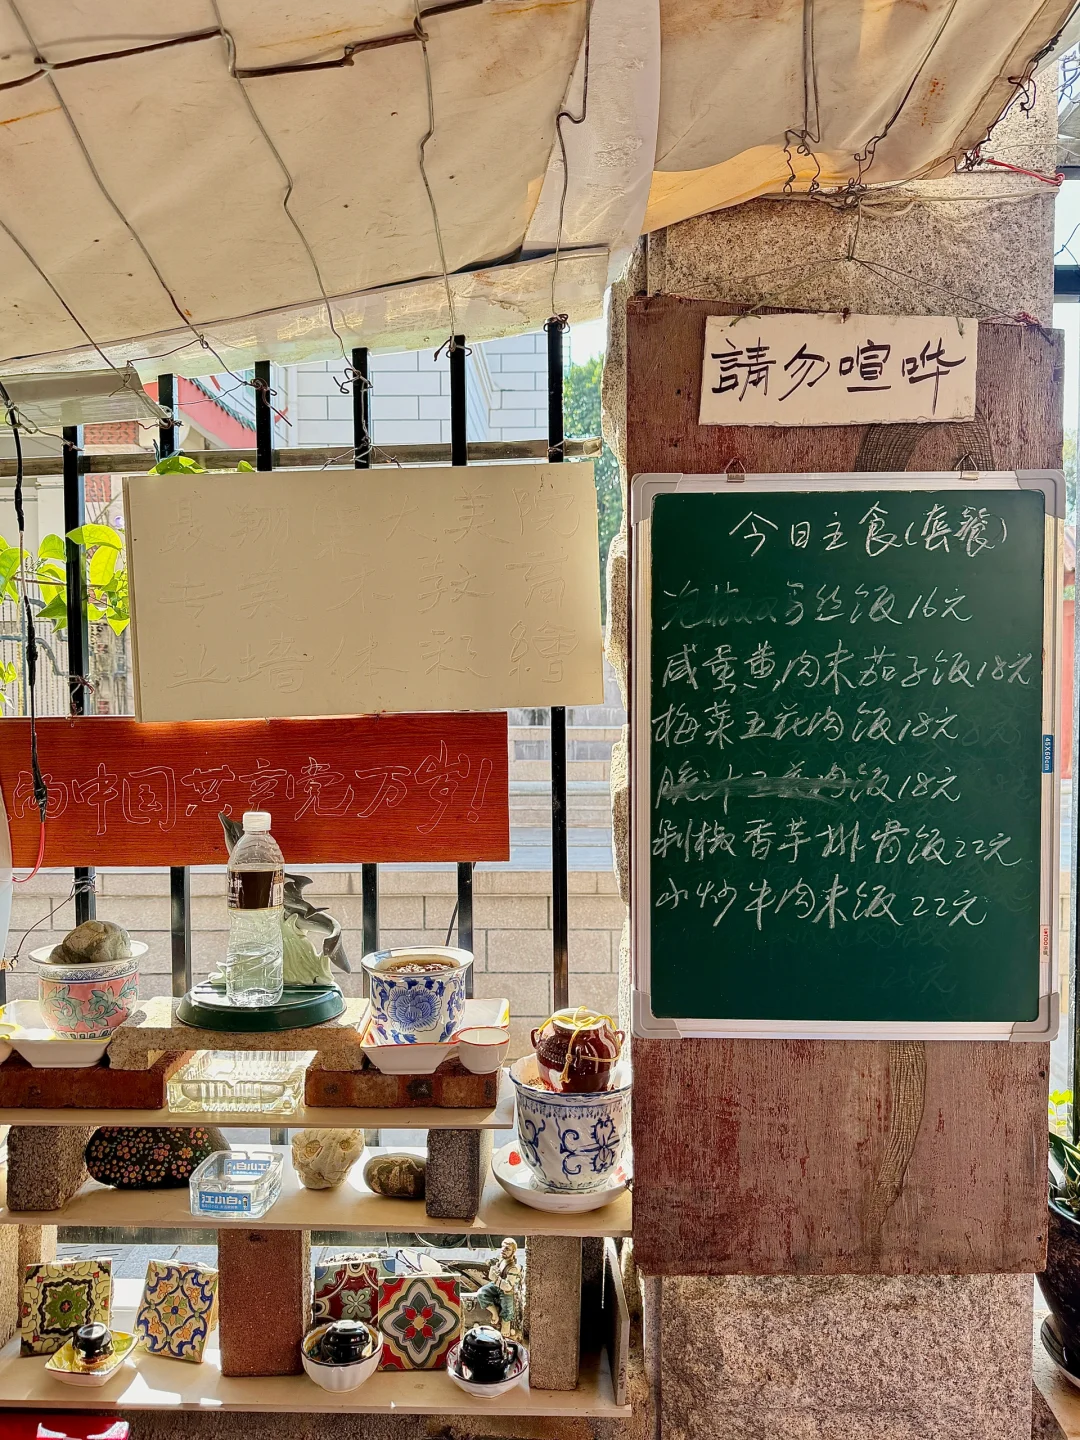 請勿喧哗
今日主食(套餐)
丝饭16元
咸蛋黄肉末茄子饭18元
梅菜五花肉饭18元
饭18元
剁椒香芋排骨饭22元
小炒牛肉末饭22元
美院
教育
墙体彩繪
的中国共产党万岁!
江小白
45X60cm